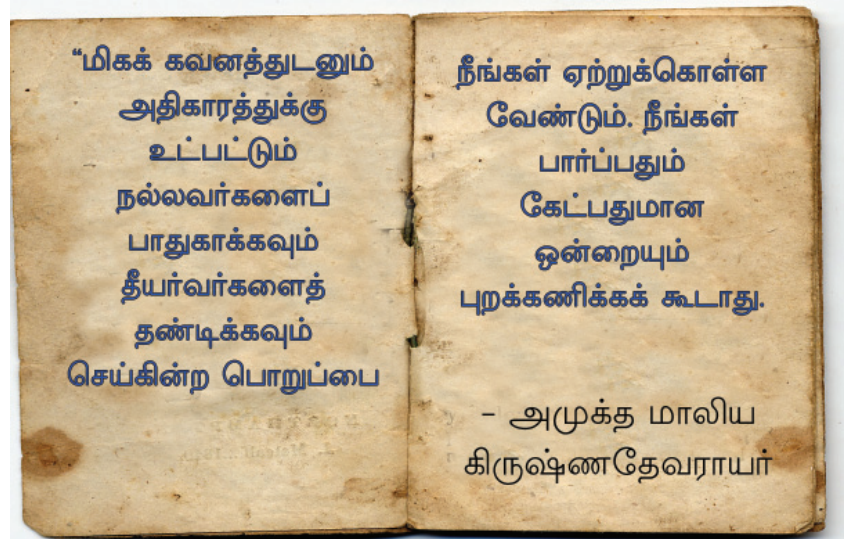 “மிகக் கவனத்துடனும்
அதிகாரத்துக்கு
உட்பட்டும்
நல்லவர்களைப்
பாதுகாக்கவும்
தீயர்வர்களைத்
தண்டிக்கவும்
செய்கின்ற பொறுப்பை
நீங்கள் ஏற்றுக்கொள்ள
வேண்டும். நீங்கள்
பார்ப்பதும்
கேட்பதுமான
ஒன்றையும்
புறக்கணிக்கக் கூடாது.
– அமுக்த மாலிய
கிருஷ்ணதேவராயர்